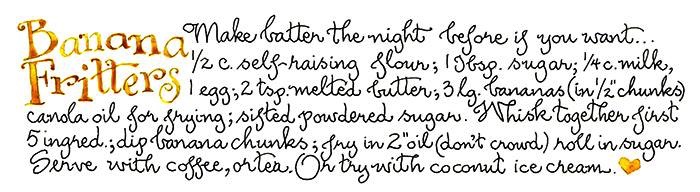 Banana
Fritters
Make batter the night before if you want...
1/2 c. self-raising flour; 1 Tbsp. sugar; 1/4 c. milk,
1 egg; 2 tsp. melted butter; 3 lg. bananas (in 1/2" chunks)
canola oil for frying; sifted powdered sugar. Whisk together first
5 ingred.; dip banana chunks; fry in 2" oil (don't crowd) roll in sugar.
Serve with coffee, or tea. Or try with coconut ice cream.